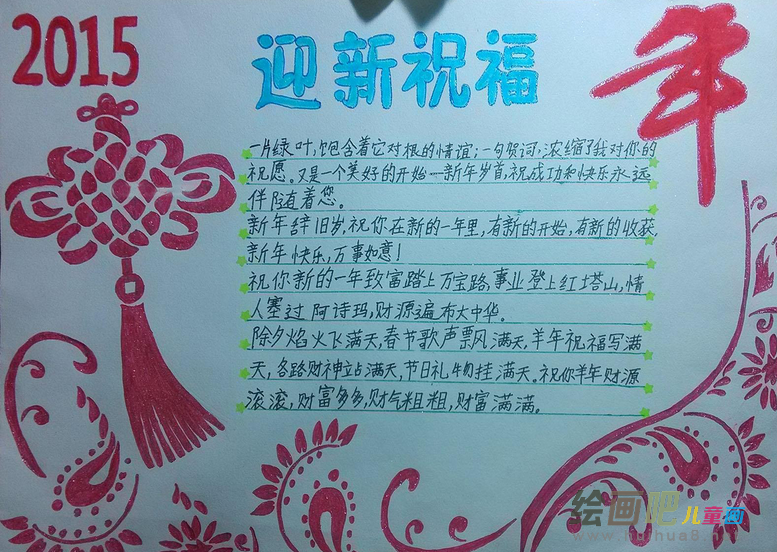 2015
迎新祝福
年
一片绿叶,饱含着它对根的情谊;一句贺词,浓缩了我对你的
祝愿。又是一个美好的开始—新年岁首,祝成功和快乐永远
伴随着您。
新年辞旧岁,祝你在新的一年里,有新的开始,有新的收获,
新年快乐,万事如意!
祝你新的一年致富踏上万宝路,事业登上红塔山,情
人塞过阿诗玛,财源遍布大中华。
除夕焰火飞满天,春节歌声票风满天,羊年祝福写满
天,各路财神立占满天,节日礼物挂满天。祝你羊年财源
滚滚,财富多多,财气粗粗,财富满满。
绘画吧儿童画